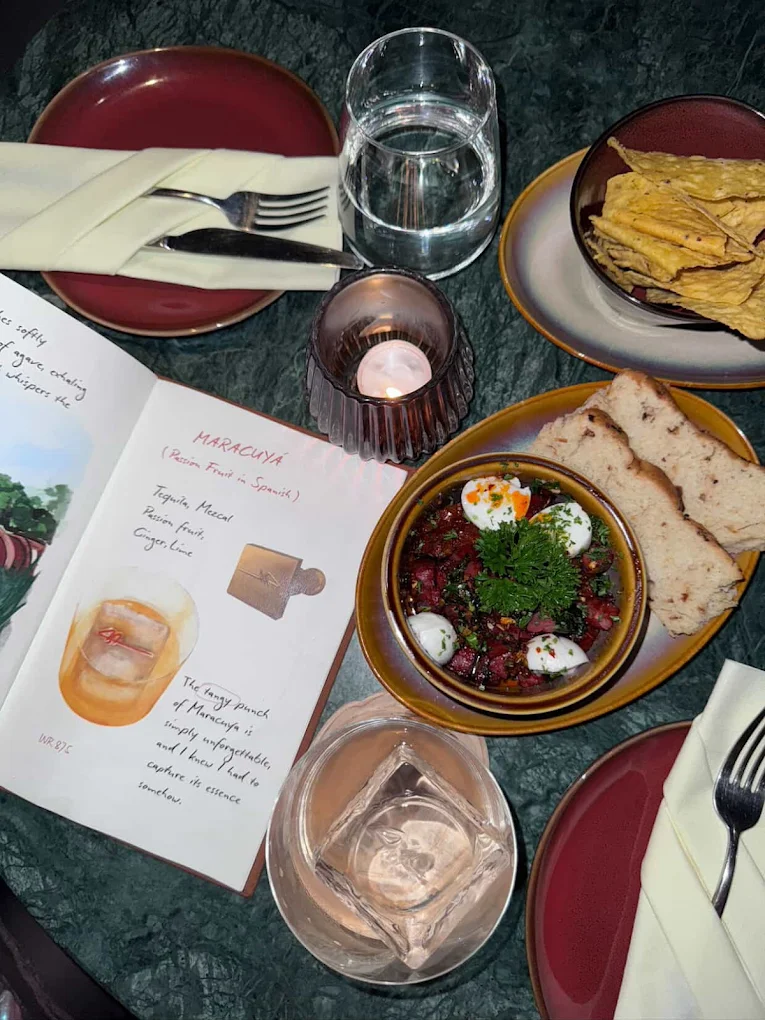 softly
of agave, exhaling
whispers the
MARACUYÁ
(Passion Fruit in Spanish)
Tequila, Mezcal
Passion fruit,
Ginger, Lime
The tangy punch
of Maracuya is
simply unforgettable,
and I knew I had to
capture its essence
somehow.
WR 875